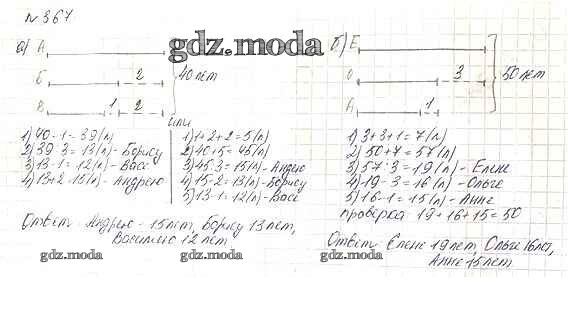 №367
а) А
Б 2 40 лет
В 1 2
1) 40-1=39(л)
2) 39:3=13(л)-Борису
3) 13-1=12(л)-Васе
4) 13+2=15(л)-Андрею
или
1) 1+2+2=5(л)
2) 40+5=45(л)
3) 45:3=15(л)-Андрею
4) 15-2=13(л)-Борису
5) 13-1=12(л)-Васе
Ответ: Андрею-15лет, Борису 13лет,
Василию 12 лет
б) Е
О 3 50 лет
А 1
1) 3+3+1=7(л)
2) 50+7=57(л)
3) 57:3=19(л)-Елене
4) 19-3=16(л)-Ольге
5) 16-1=15(л)-Анне
проверка 19+16+15=50
Ответ Елене 19лет, Ольге 16лет,
Анне 15лет
gdz.moda
gdz.moda
gdz.moda
gdz.moda